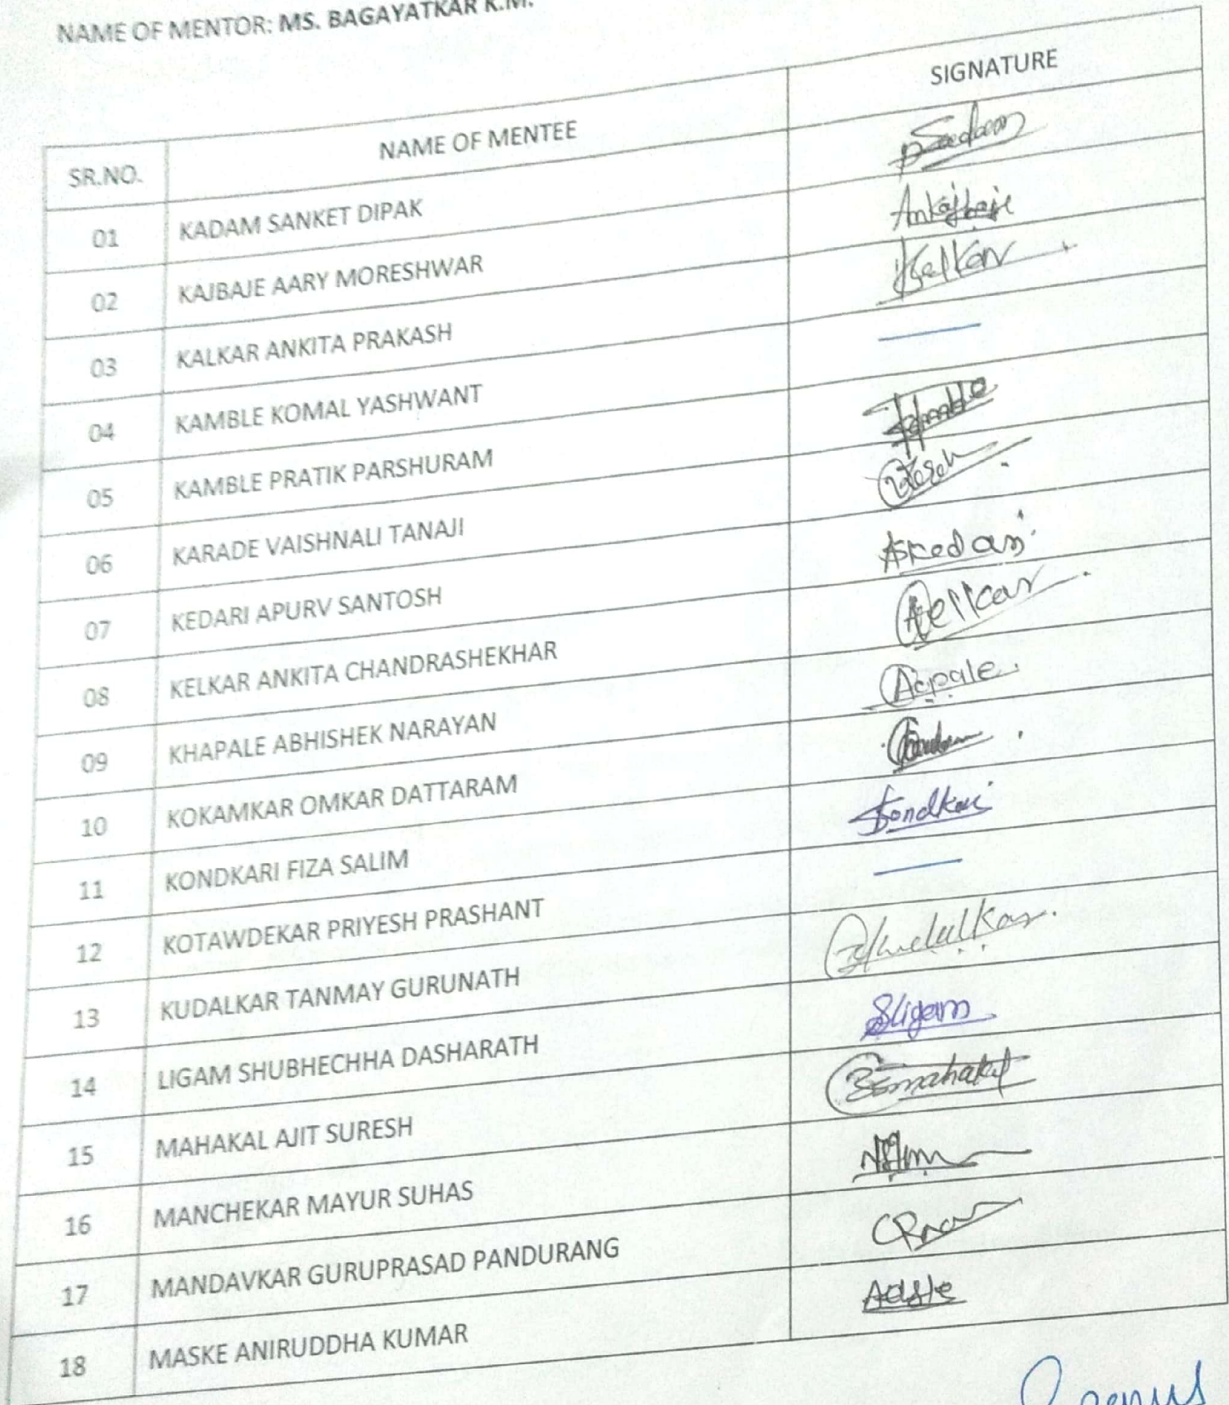 NAME OF MENTOR: MS. BAGAYATKAR K.M.
SR.NO. NAME OF MENTEE SIGNATURE
01 KADAM SANKET DIPAK
02 KAJBAJE AARY MORESHWAR Ankajbaje
03 KALKAR ANKITA PRAKASH Kalkar
04 KAMBLE KOMAL YASHWANT
05 KAMBLE PRATIK PARSHURAM
06 KARADE VAISHNALI TANAJI
07 KEDARI APURV SANTOSH ASKedari
08 KELKAR ANKITA CHANDRASHEKHAR Aelkar
09 KHAPALE ABHISHEK NARAYAN Acpale
10 KOKAMKAR OMKAR DATTARAM
11 KONDKARI FIZA SALIM
12 KOTAWDEKAR PRIYESH PRASHANT
13 KUDALKAR TANMAY GURUNATH
14 LIGAM SHUBHECHHA DASHARATH Sligam
15 MAHAKAL AJIT SURESH
16 MANCHEKAR MAYUR SUHAS
17 MANDAVKAR GURUPRASAD PANDURANG
18 MASKE ANIRUDDHA KUMAR